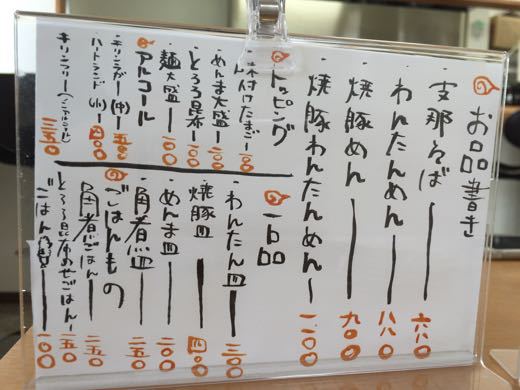 お品書き
支那そば 六八〇
わんたんめん 八八〇
焼豚めん 九〇〇
焼豚わんたんめん 一一〇〇
トッピング
味付けたまご 一〇〇
めんま大盛 一〇〇
とろろ昆布 一〇〇
麺大盛 一〇〇
アルコール
キリンラガー(中)
ハートランド(小) 四〇〇
キリンフリー(ノンアルコール)
一品
わんたん皿
焼豚皿 四〇〇
めんま皿 二〇〇
角煮皿 二五〇
ごはんもの
角煮ごはん 二五〇
とろろ昆布めしごはん 一五〇
ごはん 一〇〇